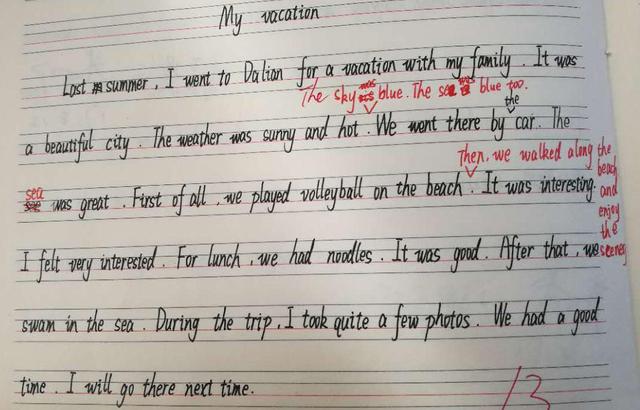 My vacation
Last summer, I went to Dalian for a vacation with my family. It was
The sky was blue. The sea was blue too.
the
a beautiful city. The weather was sunny and hot. We went there by car. The
Then, we walked along the
beach
sea
was great. First of all, we played volleyball on the beach. It was interesting.
and
enjoy
the
I felt very interested. For lunch, we had noodles. It was good. After that, we
scenery
swam in the sea. During the trip, I took quite a few photos. We had a good
time. I will go there next time.
13